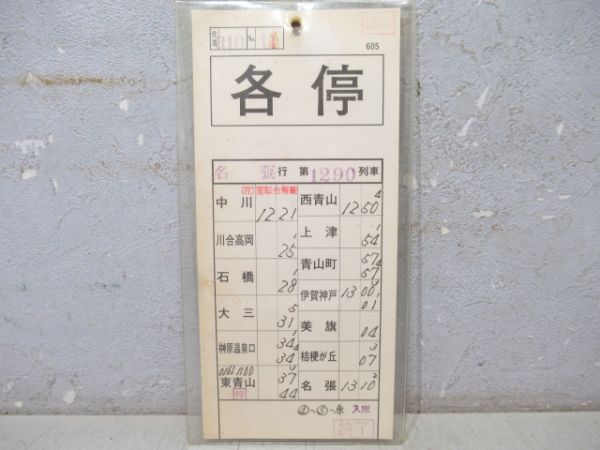 605
各停
名張行 第1290列車
(注)運転台無線
中川 12 21
川合高岡 1 25
石橋 1 28
大三 5 31
榊原温泉口 1 34 34
東青山 37 44
西青山 4 12 50
上津 1 54
青山町 57 57
伊賀神戸 13 00 01
美旗 04
桔梗が丘 3 07
名張 13 10 2
④〜⑤〜車 入庫
終了